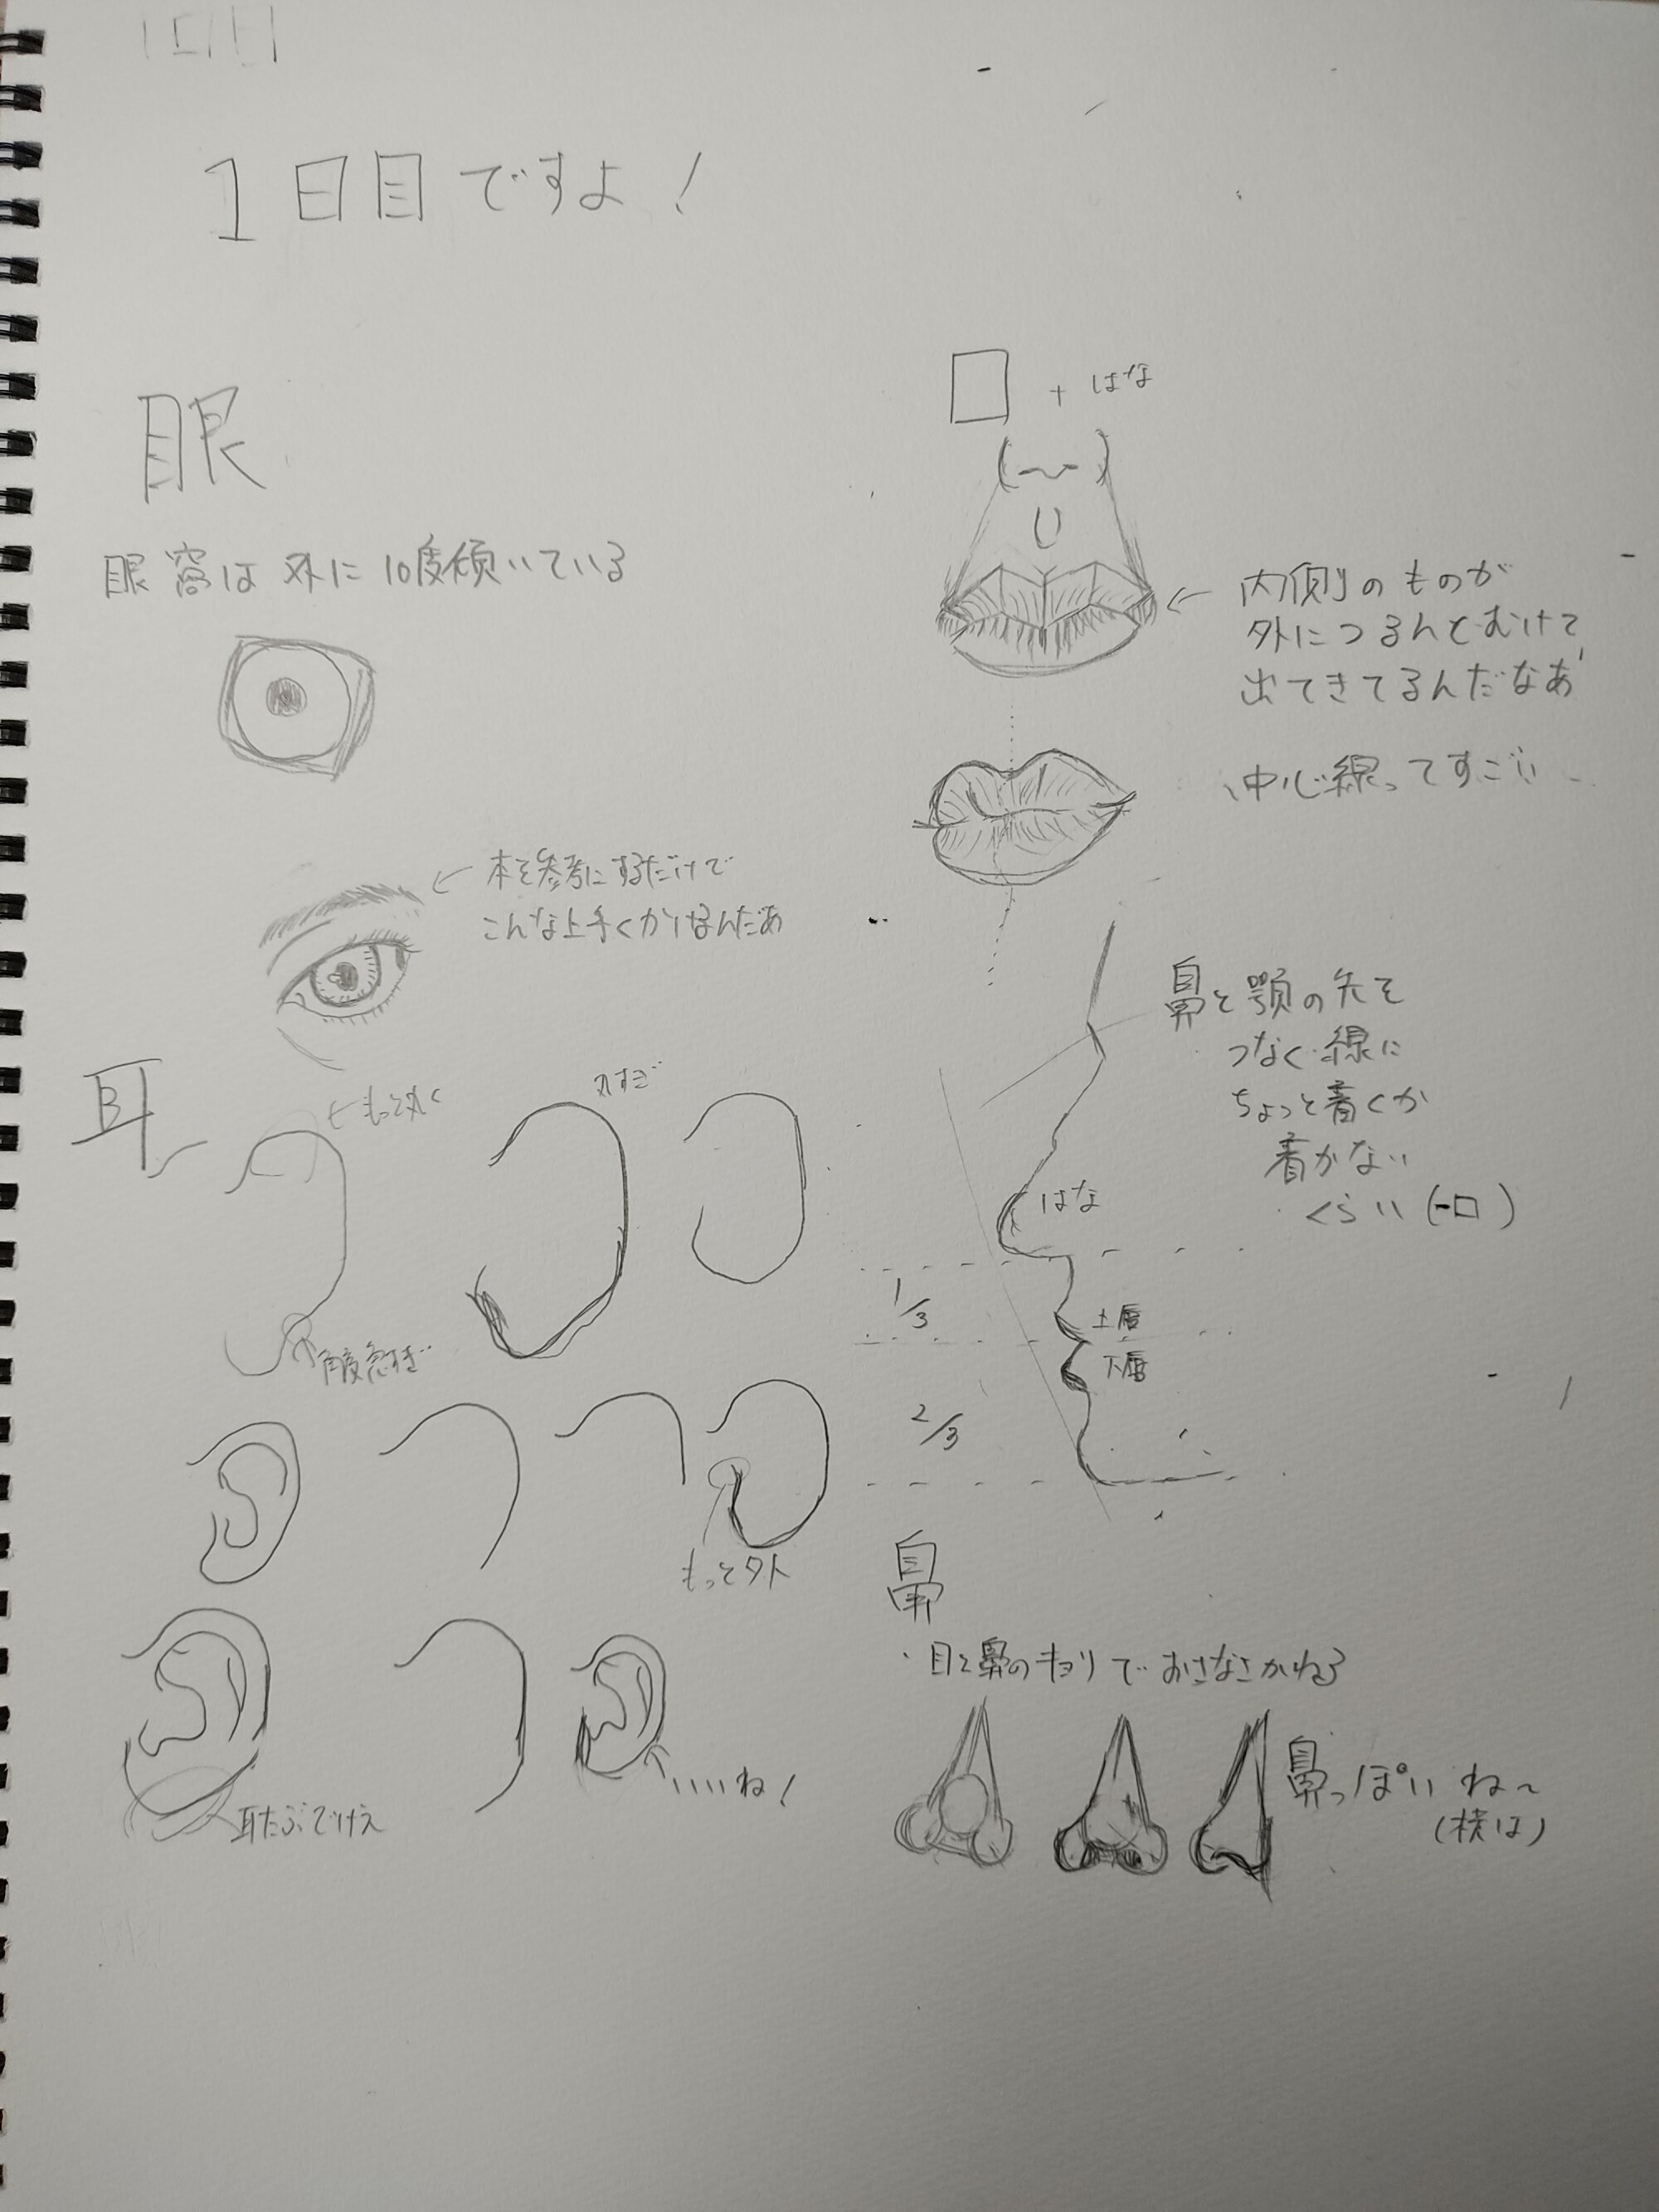 1日目ですよ!
眼
眼窩は外に10度傾いている
←本を参考にするだけで
こんな上手くかけるんだあ
耳
←もっと丸く
丸すぎ
角度急すぎ
もっと外
耳たぶでけえ
いいね!
口+はな
←内側のものが
外につるんとむけて
出てきてるんだなあ
中心線ってすごい
鼻と顎の先を
つなぐ線に
ちょっと着くか
着かない
くらい(口)
はな
1/3
上唇
下唇
2/3
鼻
・目と鼻のキョリでおさなさかわる
鼻っぽいね~
(横は)